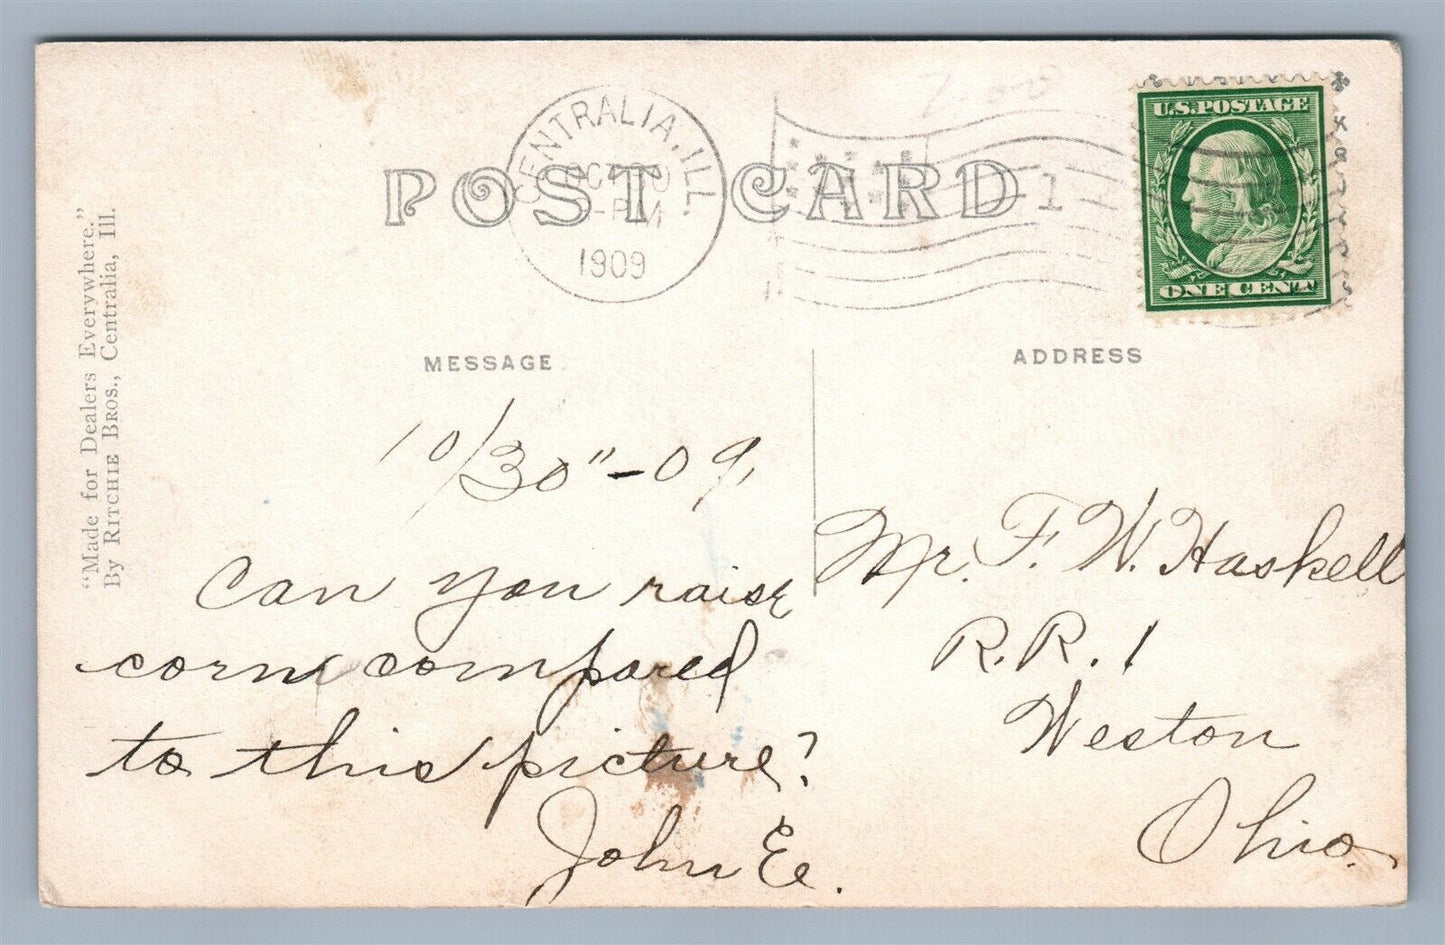 "Made for Dealers Everywhere."
By RITCHIE BROS., Centralia, Ill.
POST CARD
CENTRALIA, ILL.
OCT
PM
1909
1
U.S. POSTAGE
ONE CENT
MESSAGE
10/30"-09,
Can you raise
corn compared
to this picture?
John E.
ADDRESS
Mr. F. W. Haskell
R.R. 1
Weston
Ohio.